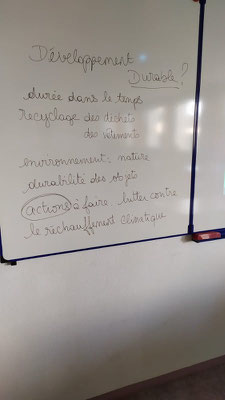 Développement
Durable?
durée dans le temps
recyclage des déchets
des vêtements
environnement: nature
durabilité des objets
actions à faire: lutter contre
le réchauffement climatique